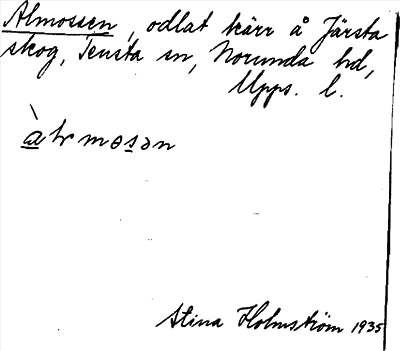 Almossen, odlat kärr å Järsta
skog, Tensta sn, Norunda hd,
Upps. l.
àlrmosən
Stina Holmström 1935